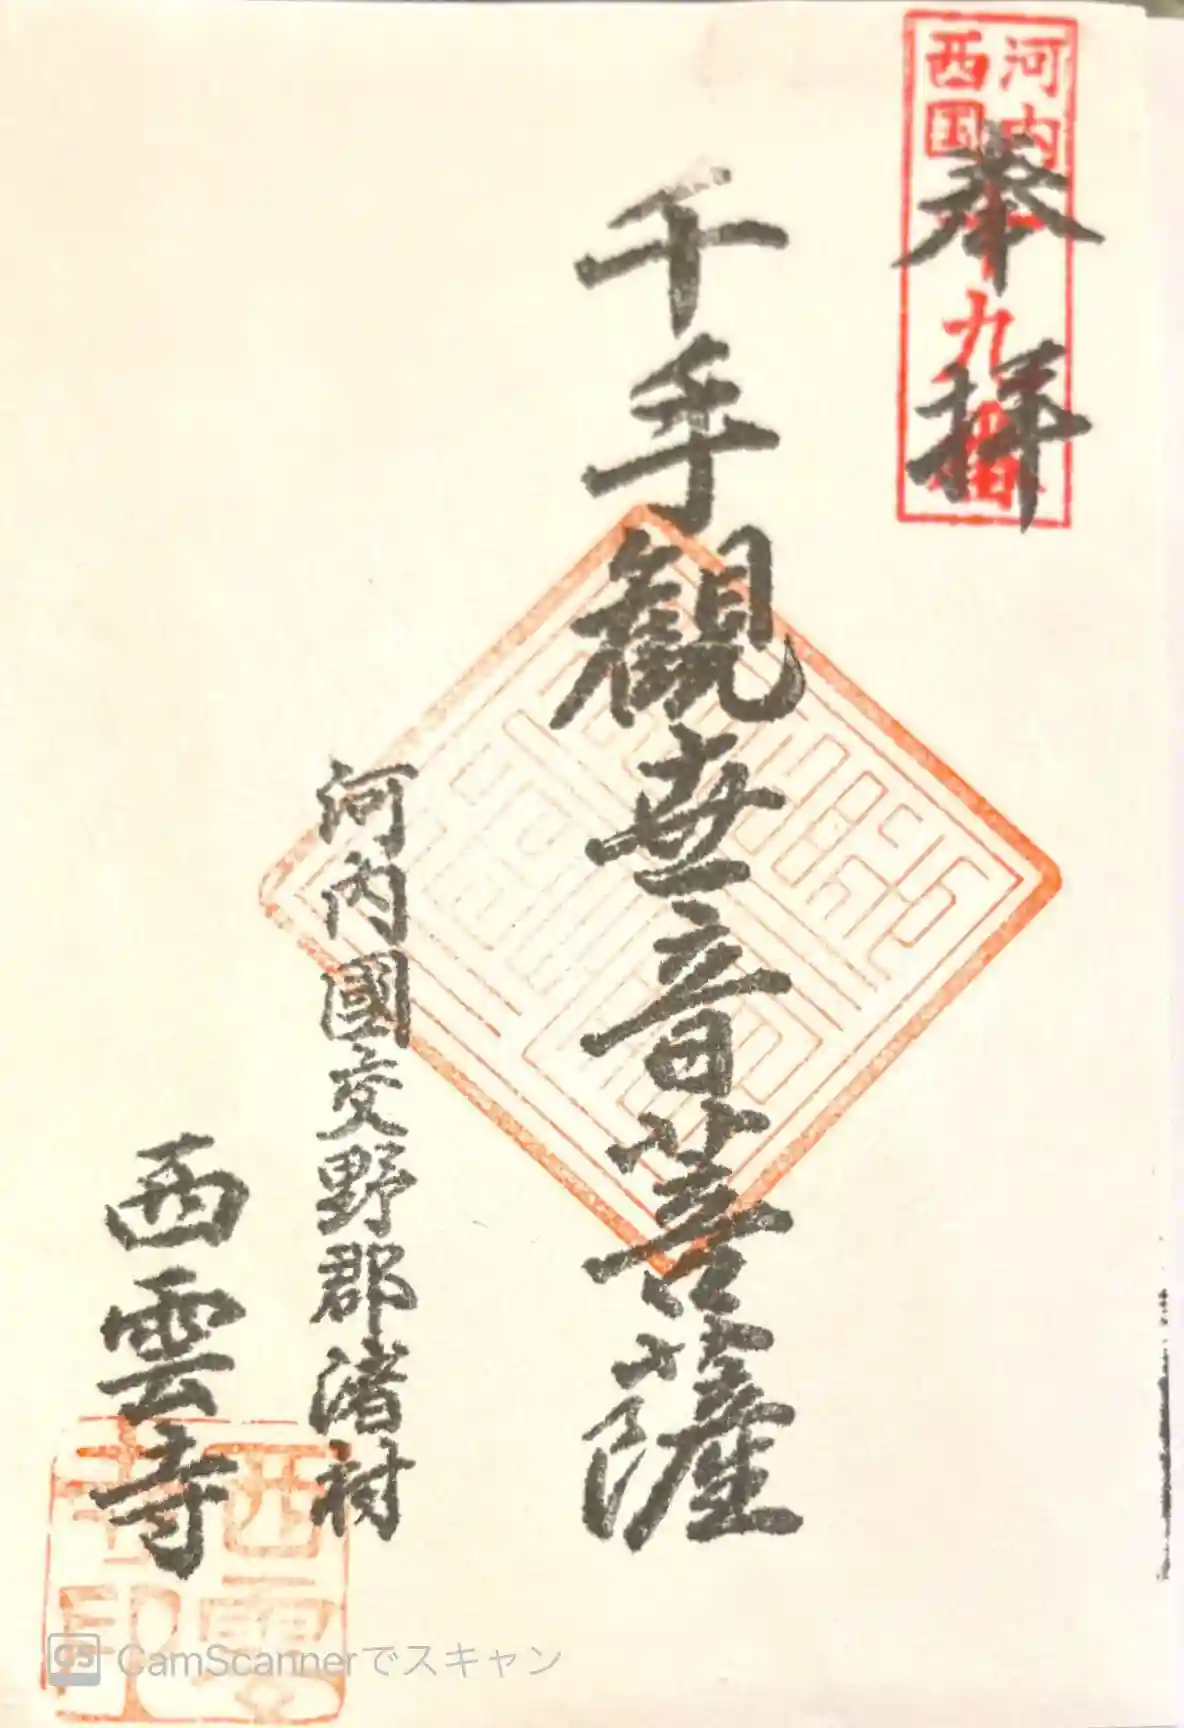 河内
西国
九番
奉拝
千手観世音菩薩
河内國交野郡渚村
西雲寺
西雲
寺印
CS CamScannerでスキャン